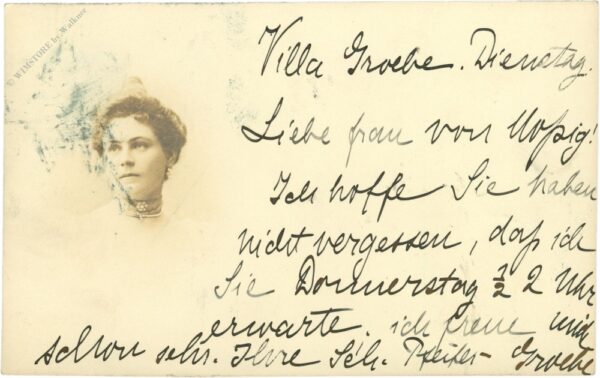 © WIMSTORE by Walkner
Villa Groebe. Dienstag.
Liebe frau von Moßig!
Ich hoffe Sie haben
nicht vergessen, daß ich
Sie Donnerstag ½ 2 Uhr
erwarte. ich freue mich
schon sehr. Ihre Sch. Pfeifer- Groebe